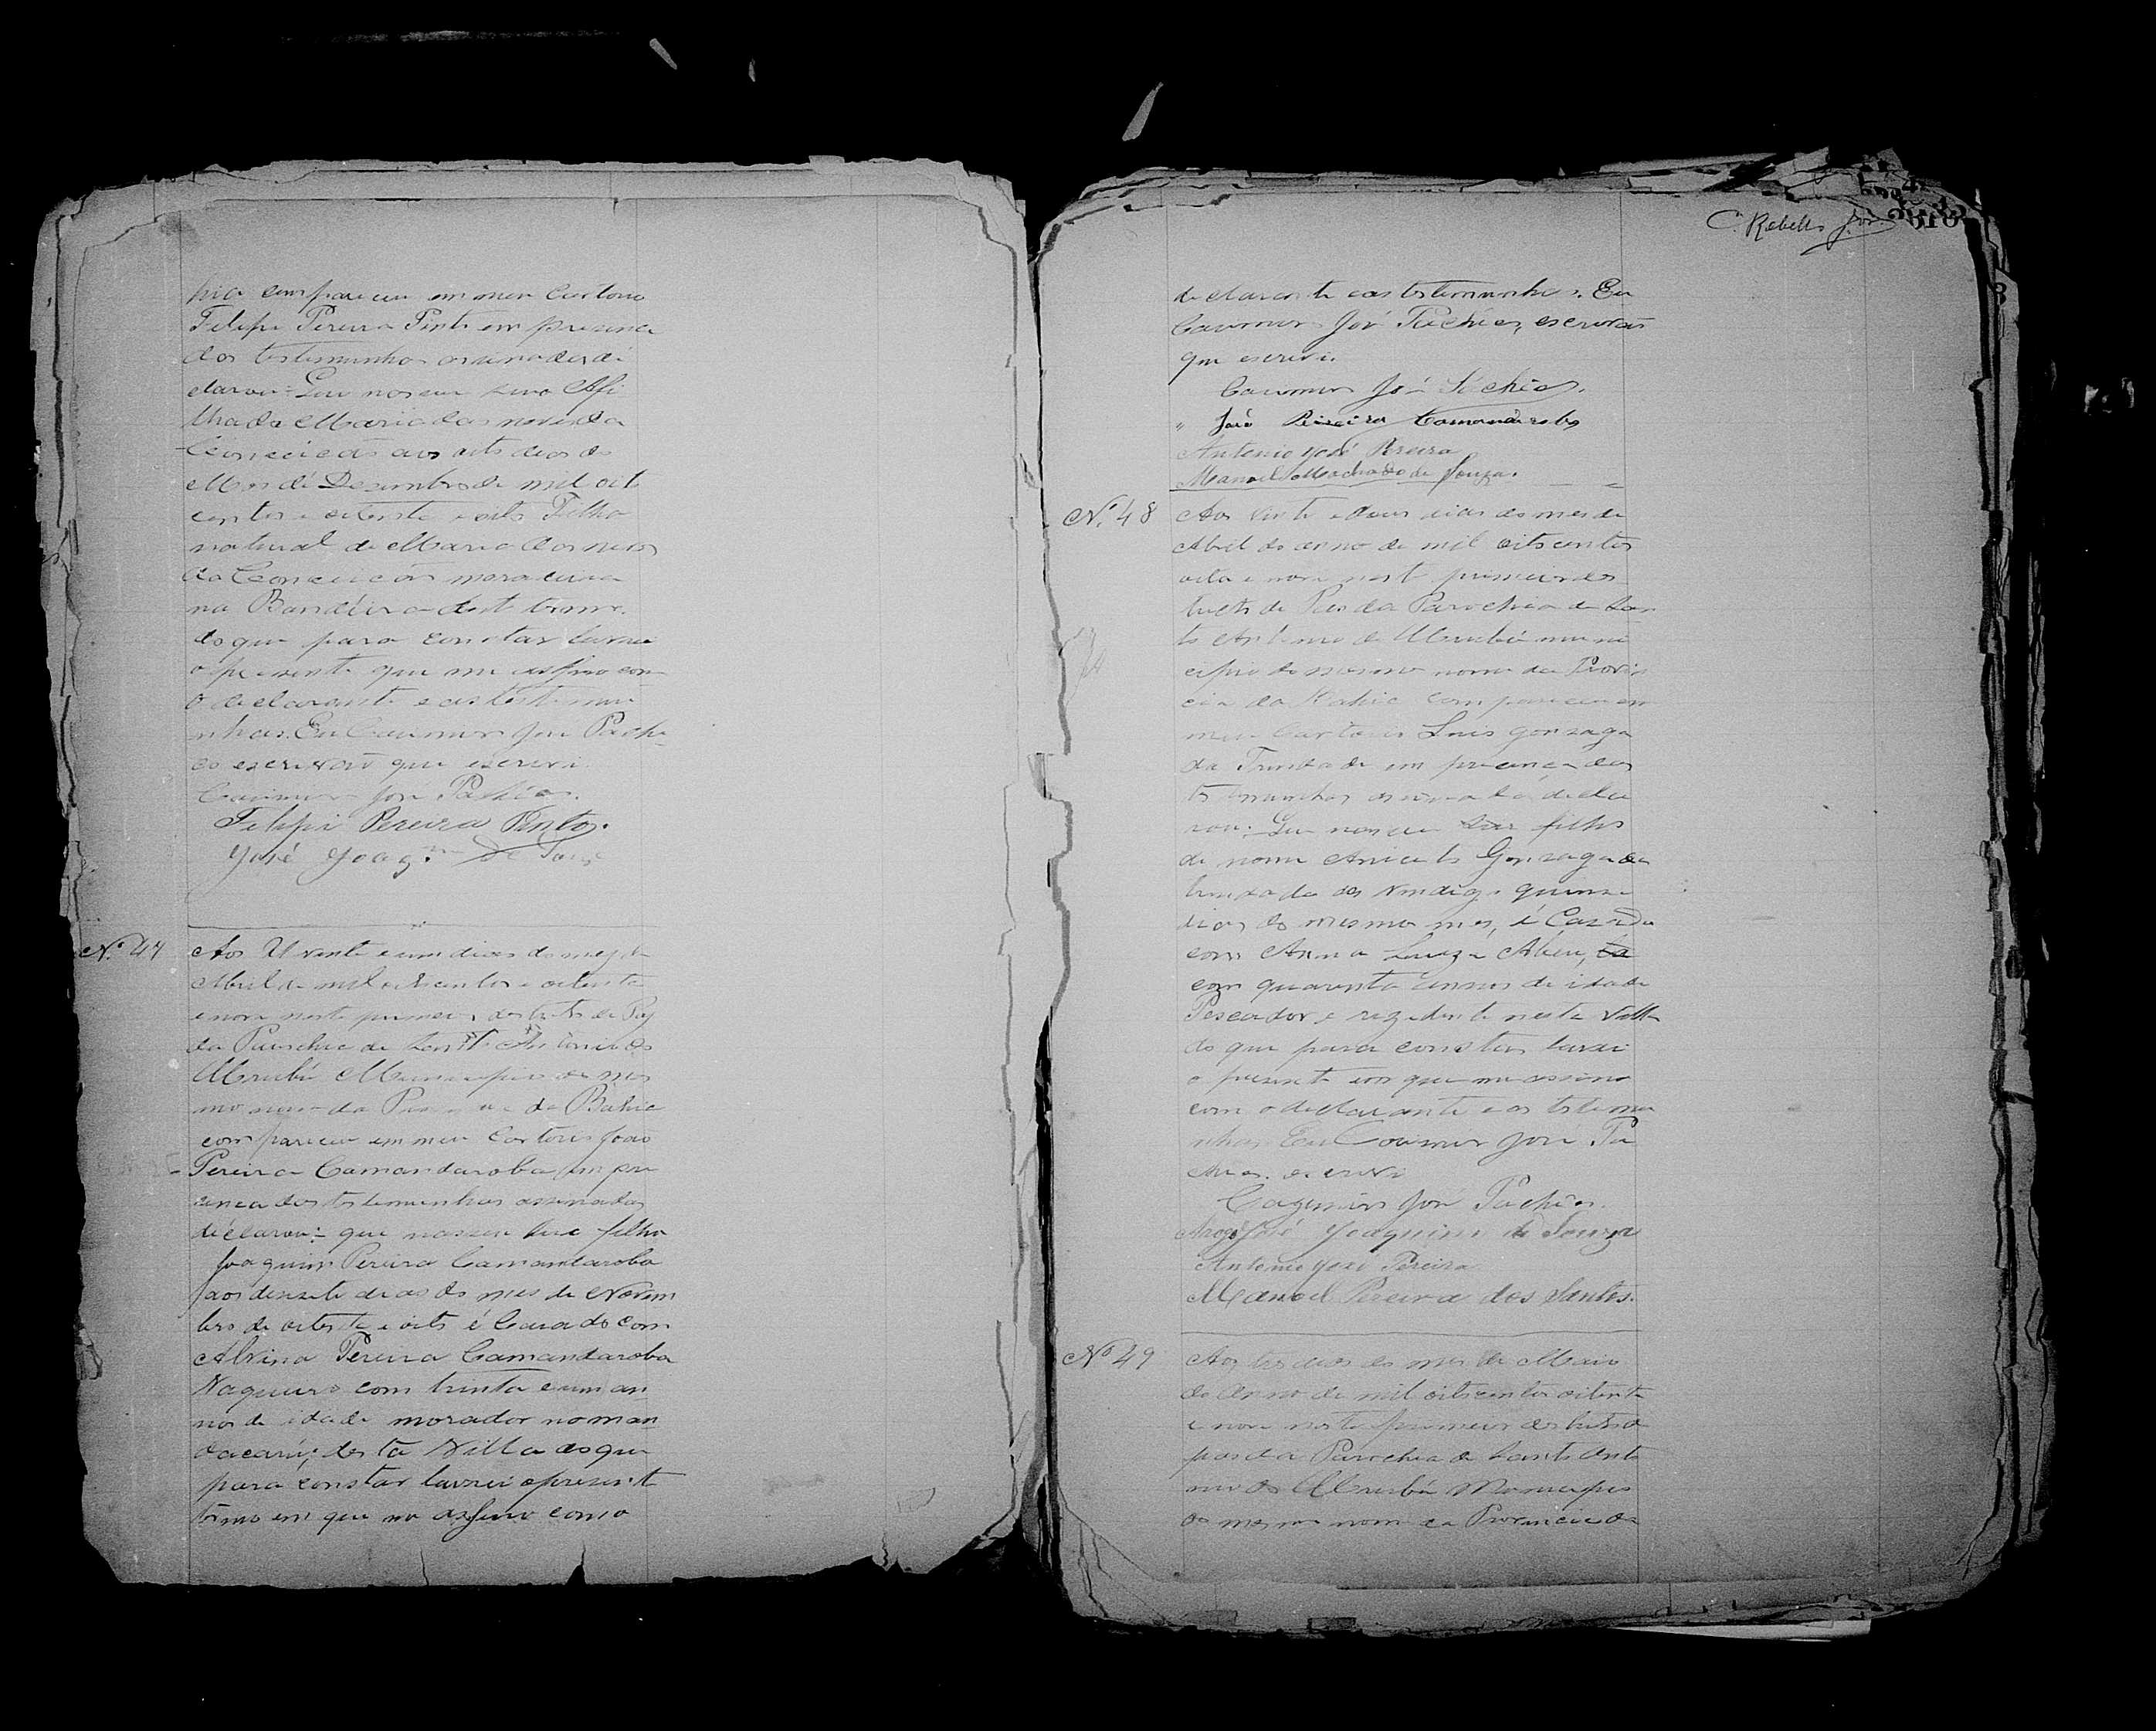 hia compareceu em meu Cartorio
Felipe Pereira Pinto em presenca
das testemunhas assinadas de
clarou: Que nasceu sua Afi
lhada Maria das neves da
Conceicão aos oito dias do
Mes de Desembro de mil oit
centos e oitenta e oito Filha
natural de Maria das neves
da Conceicão moradeira
na Bandeira dest termo.
do que para constar lavrei
o presente que me assino com
o declarante e as testemu
nhas. Eu Casimiro José Pache
co escrivão que escrevi.
Casimiro José Pachêco.
Felipe Pereira Pinto.
José Joaq.m de Souz
Nº 47
Aos Vinte e um dias do mez de
Abril de mil oitocentos e oitenta
e nove neste primeiro destrito de Paz
da Parochia de Santo Antonio do
Urubú Municipio do mes
mo nome da Provincia da Bahia
compareceu em meu Cartorio João
Pereira Camandaroba em pre
senca das testemunhas assinadas
declarou: que nasceu seu filho
Joaquim Pereira Camandaroba
aos deseste dias do mes de Novem
bro de oitenta e oito é Casado com
Alvina Pereira Camandaroba
Vaqueiro com trinta e um an
nos de idade morador no man
dacarú, desta Villa do que
para constar lavrei o present
têrmo em que me assino com o
C. Rebello Jor.
declarante e as testemunhas. Eu
Casimiro José Pachêco, escrivão
que escrevi.
Casimiro José Pachêco.
João Pereira Camandaroba
Antonio José Pereira
Manoel Machado de Souza.
Nº 48
Aos vinte e dous dias do mes de
Abril do anno de mil oitocentos
oita e nove nest primeiro des
tricto de Pas da Parochia de San
to Antonio do Urubú muni
cipio do mesmo nome da Provin
cia da Bahia compareceu em
meu Cartorio Luis Gonzaga
da Trindade em presenca das
testemunhas assinadas decla
rou: Que nasceu seu filho
de nome Aniceto Gonzaga da
trindade
dias do mesmo mes, é Casado
com Anna Luiza Abreu,
com quarenta annos de idade
Pescador e rezidente nesta Villa
do que para constar lavrei
o presente em que me assino
com o declarante e as testemu
nhas Eu Casimiro José Pa
chêco. escrevi
Cazimiro José Pachêco.
Arogo José Joaquim de Souza
Antonio José Pereira
Manoel Pereira dos Santos.
Nº 49
Aos tres dias do mes de Maio
do anno de mil oitocentos oitenta
e nove neste primeiro destrito d
pas da Parochia de Santo Anto
nio do Urubú Municipio
do mesmo nome da Provincia da